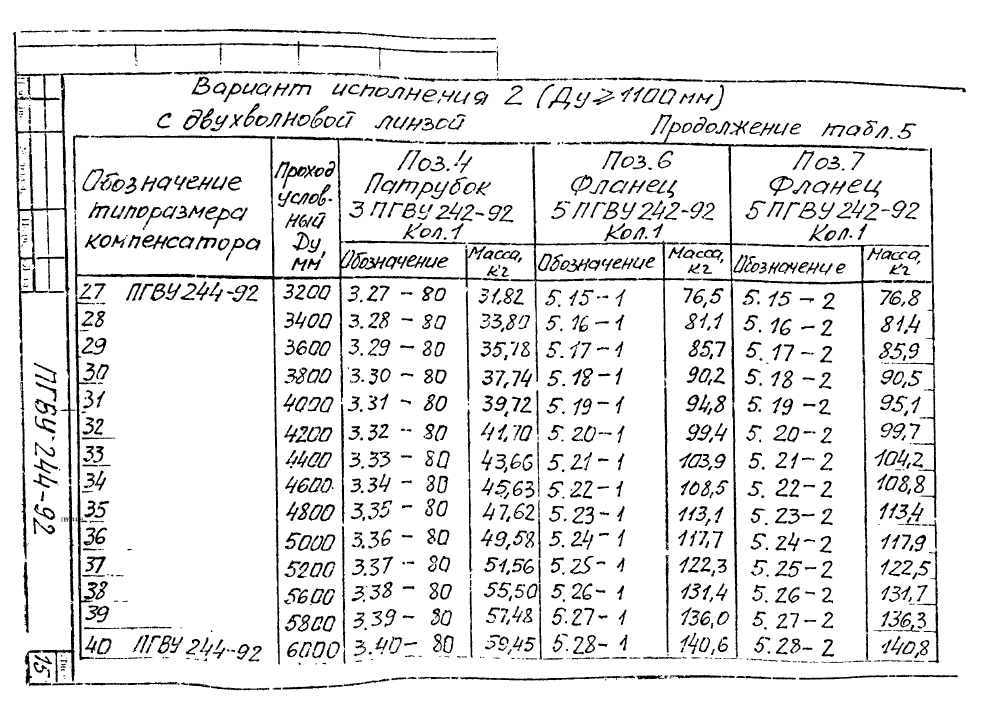 Вариант исполнения 2 (Ду ≥ 1100 мм)
с двухволновой линзой Продолжение табл. 5
Обозначение типоразмера компенсатора
Проход условный Ду, мм
Поз. 4 Патрубок 3 ПГВУ 242-92 Кол. 1
Поз. 6 Фланец 5 ПГВУ 242-92 Кол. 1
Поз. 7 Фланец 5 ПГВУ 242-92 Кол. 1
Обозначение Масса, кг Обозначение Масса, кг Обозначение Масса, кг
27 ПГВУ 244-92 3200 3.27 - 80 31,82 5.15 - 1 76,5 5.15 - 2 76,8
28 3400 3.28 - 80 33,80 5.16 - 1 81,1 5.16 - 2 81,4
29 3600 3.29 - 80 35,78 5.17 - 1 85,7 5.17 - 2 85,9
30 3800 3.30 - 80 37,74 5.18 - 1 90,2 5.18 - 2 90,5
31 4000 3.31 - 80 39,72 5.19 - 1 94,8 5.19 - 2 95,1
32 4200 3.32 - 80 41,70 5.20 - 1 99,4 5.20 - 2 99,7
33 4400 3.33 - 80 43,66 5.21 - 1 103,9 5.21 - 2 104,2
34 4600 3.34 - 80 45,63 5.22 - 1 108,5 5.22 - 2 108,8
35 4800 3.35 - 80 47,62 5.23 - 1 113,1 5.23 - 2 113,4
36 5000 3.36 - 80 49,58 5.24 - 1 117,7 5.24 - 2 117,9
37 5200 3.37 - 80 51,56 5.25 - 1 122,3 5.25 - 2 122,5
38 5600 3.38 - 80 55,50 5.26 - 1 131,4 5.26 - 2 131,7
39 5800 3.39 - 80 57,48 5.27 - 1 136,0 5.27 - 2 136,3
40 ПГВУ 244-92 6000 3.40 - 80 59,45 5.28 - 1 140,6 5.28 - 2 140,8
ПГВУ 244-92
15